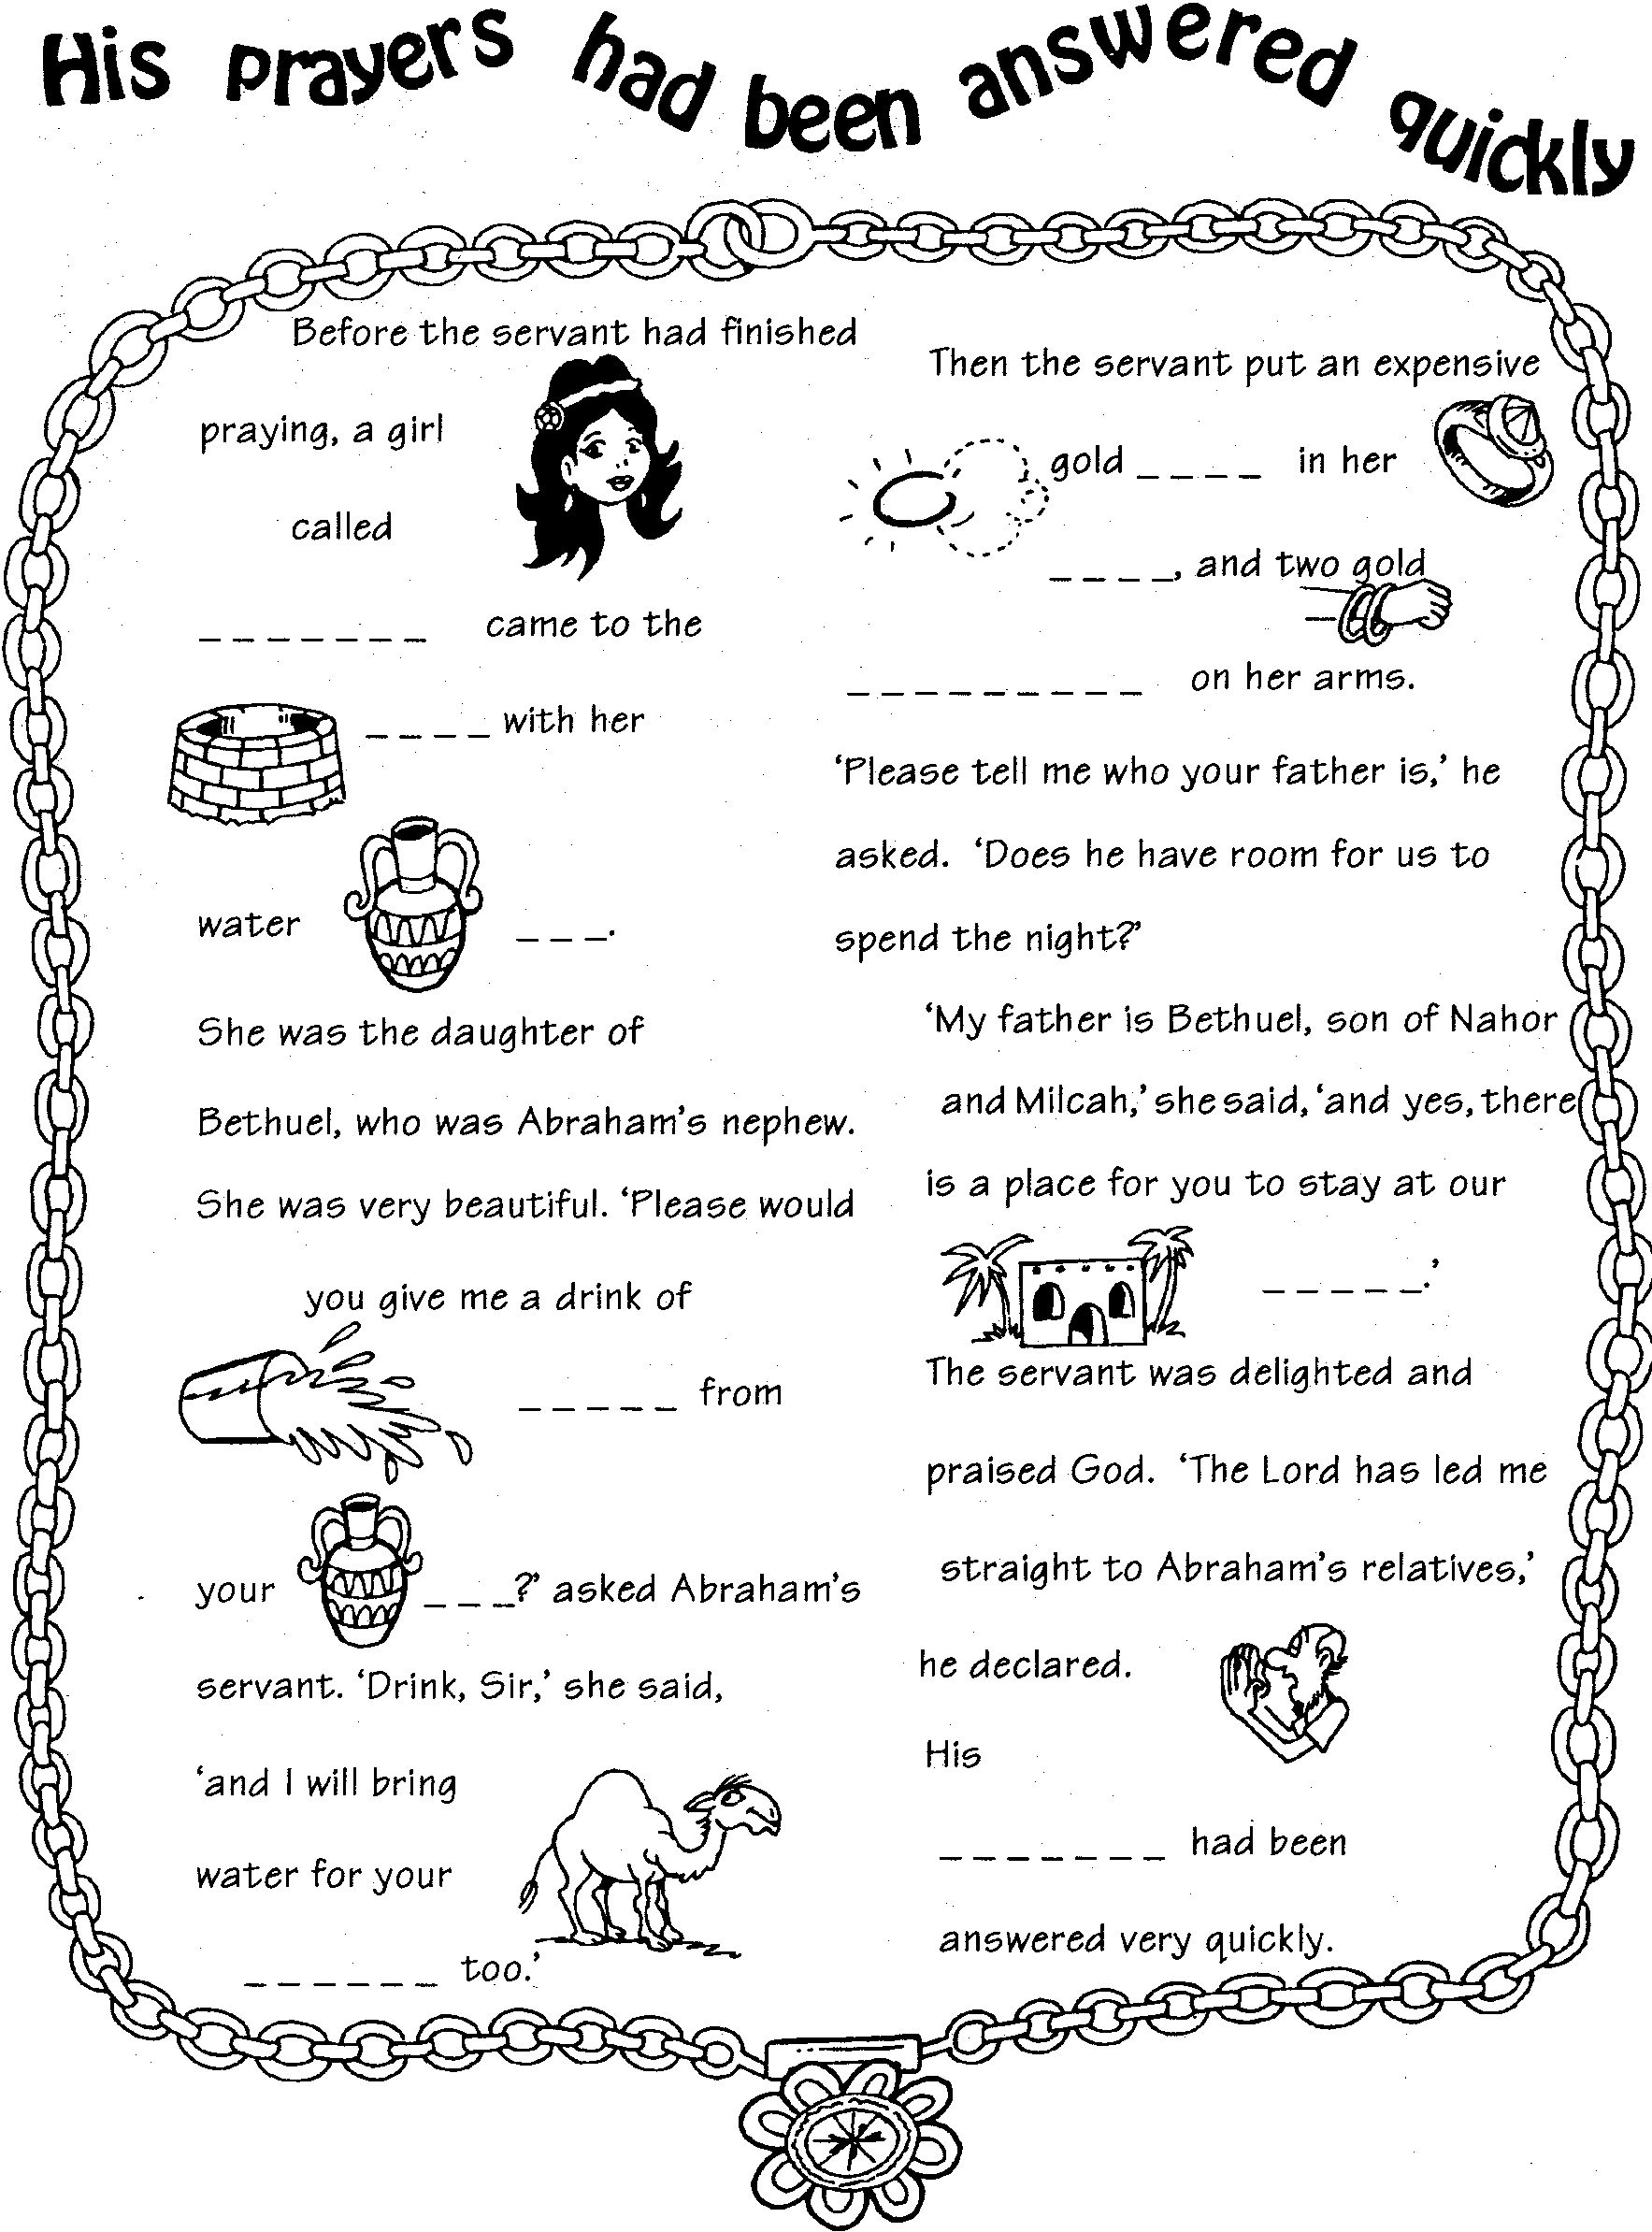 His prayers had been answered quickly
Before the servant had finished
praying, a girl
called
_ _ _ _ _ _ _ came to the
_ _ _ _ with her
water _ _ _.
She was the daughter of
Bethuel, who was Abraham's nephew.
She was very beautiful. 'Please would
you give me a drink of
_ _ _ _ _ from
your _ _ _?' asked Abraham's
servant. 'Drink, Sir,' she said,
'and I will bring
water for your
_ _ _ _ _ _ too.'
Then the servant put an expensive
gold _ _ _ _ in her
_ _ _ _, and two gold
_ _ _ _ _ _ _ _ _ on her arms.
'Please tell me who your father is,' he
asked. 'Does he have room for us to
spend the night?'
'My father is Bethuel, son of Nahor
and Milcah,' she said, 'and yes, there
is a place for you to stay at our
_ _ _ _ _.'
The servant was delighted and
praised God. 'The Lord has led me
straight to Abraham's relatives,'
he declared.
His
_ _ _ _ _ _ _ had been
answered very quickly.